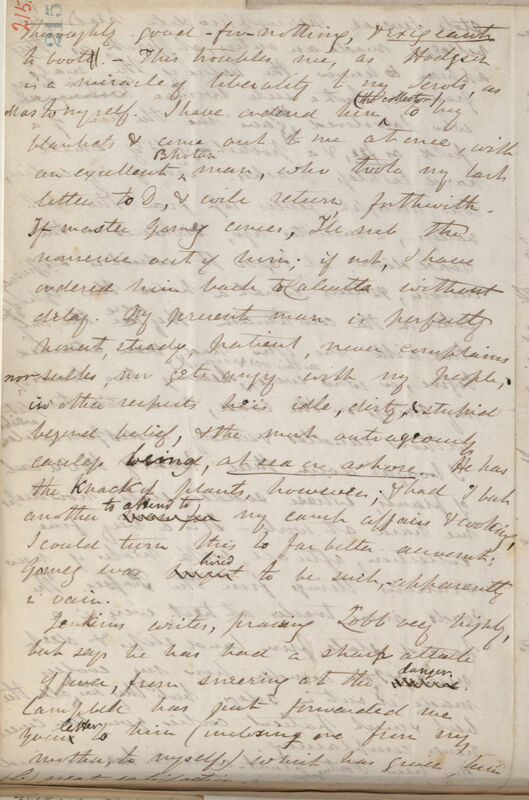 215.
215
thoroughly good-for-nothing, & exigeante
to boot. — This troubles me, as Hodgson
is a miracle of liberality to my servts, as
also to myself. I have ordered him (the collector) to buy
blankets & come out to me at once, with
an excellent Bhotan man, who took my last
letters to D, & will return forthwith.
If master Gomez comes, I'll rub the
nonsense out of him; if not, I have
ordered him back to Calcutta, without
delay. My present man is perfectly
honest, steady, patient, never complains
nor sulks, nor gets angry with my people,
in other respects he is idle, dirty, & stupid
beyond belief, & the most outrageously
careless being, at sea or ashore. He has
the knack of plants, however; & had I but
another to attend to my camp affairs & cooking,
I could turn this to far better account;
Gomez was hired to be such, — apparently
in vain.
Jenkins writes, praising Lobb very highly,
but says he has had a sharp attack
of fever, from sneering at the danger.
Campbell has just forwarded me
your letter to him (inclosing one from my
mother to myself) which has given him